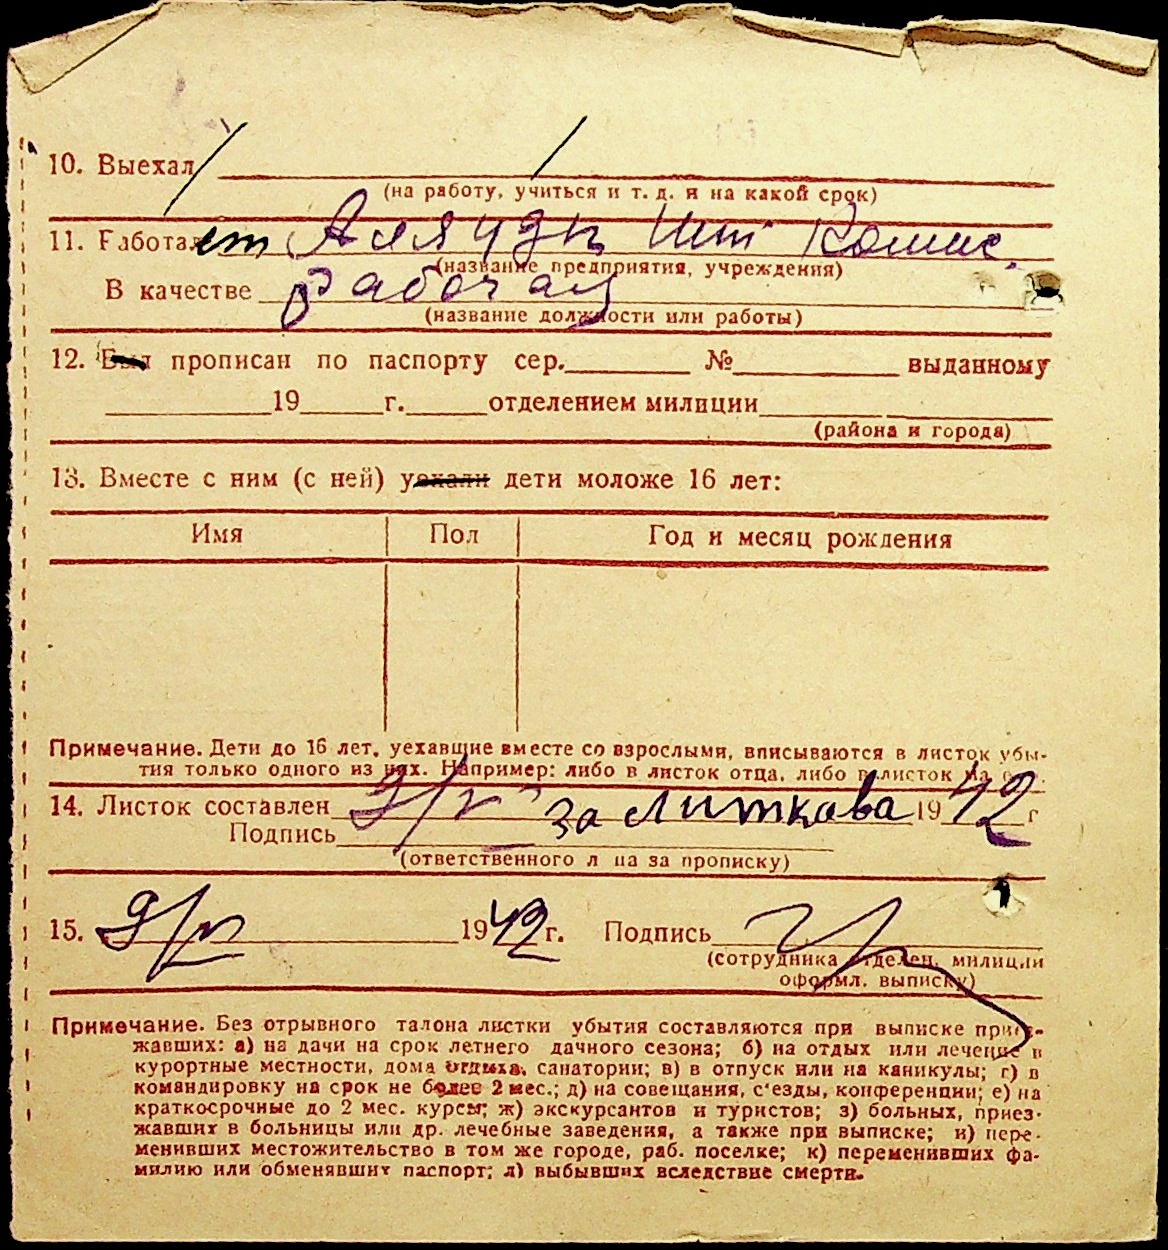 10. Выехал
(на работу, учиться и т. д. и на какой срок)
11. Работает
(название предприятия, учреждения)
В качестве рабочая
(название должности или работы)
12. Был прописан по паспорту сер. № выданному
19 г. отделением милиции
(района и города)
13. Вместе с ним (с ней) уехали дети моложе 16 лет:
Имя Пол Год и месяц рождения
Примечание. Дети до 16 лет, уехавшие вместе со взрослыми, вписываются в листок убы-
тия только одного из них. Например: либо в листок отца, либо в листок
14. Листок составлен за 1942 г
Подпись
(ответственного лица за прописку)
15. 1942 г. Подпись
(сотрудника отделен. милиции
оформл. выписку)
Примечание. Без отрывного талона листки убытия составляются при выписке приез-
жавших: а) на дачи на срок летнего дачного сезона; б) на отдых или лечение в
курортные местности, дома отдыха, санатории; в) в отпуск или на каникулы; г) в
командировку на срок не более 2 мес.; д) на совещания, с'езды, конференции; е) на
краткосрочные до 2 мес. курсы; ж) экскурсантов и туристов; з) больных, приез-
жавших в больницы или др. лечебные заведения, а также при выписке; и) пере-
менивших местожительство в том же городе, раб. поселке; к) переменивших фа-
милию или обменявших паспорт; л) выбывших вследствие смерти.